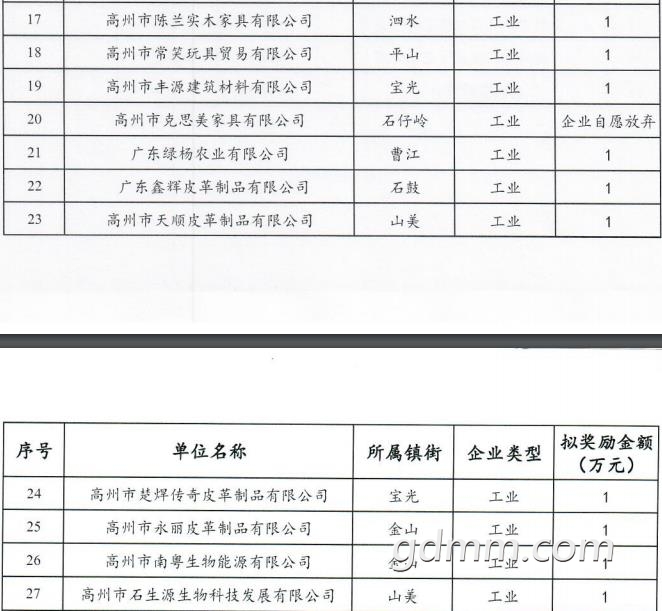 17 高州市陈兰实木家具有限公司 泗水 工业 1
18 高州市常笑玩具贸易有限公司 平山 工业 1
19 高州市丰源建筑材料有限公司 宝光 工业 1
20 高州市克思美家具有限公司 石仔岭 工业 企业自愿放弃
21 广东绿杨农业有限公司 曹江 工业 1
22 广东鑫辉皮革制品有限公司 石鼓 工业 1
23 高州市天顺皮革制品有限公司 山美 工业 1
序号 单位名称 所属镇街 企业类型 拟奖励金额
(万元)
24 高州市楚焊传奇皮革制品有限公司 宝光 工业 1
25 高州市永丽皮革制品有限公司 金山 工业 1
26 高州市南粤生物能源有限公司 金山 工业 1
27 高州市石生源生物科技发展有限公司 山美 工业 1
gdmm.com